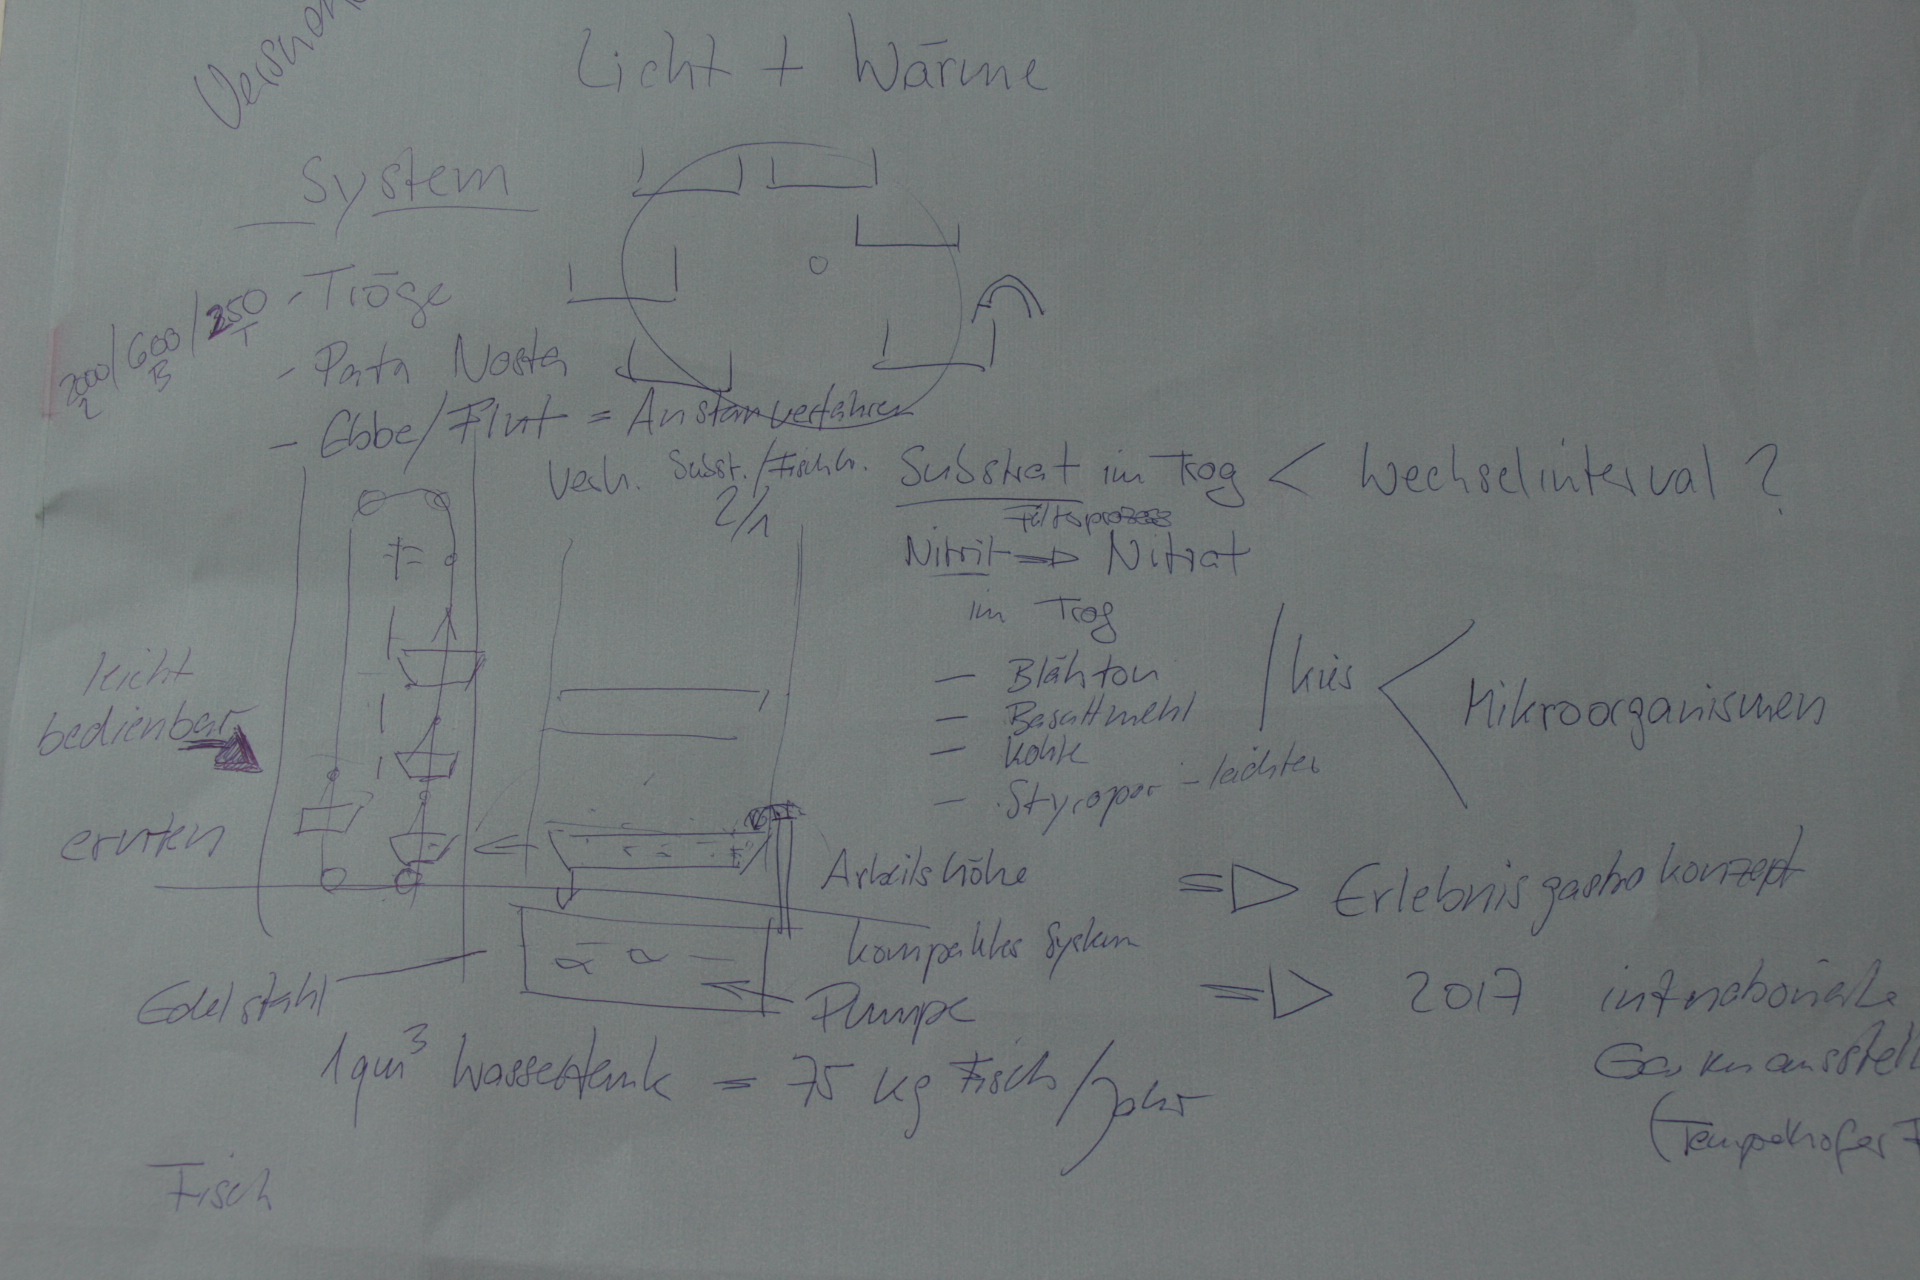 Licht + Wärme
System
2000/600/250
B T
- Tröge
- Pata Noster
- Ebbe/Flut = Anstauverfahren
Verh. Subst./Fischb.
2/1
Substrat im Trog < Wechselinterval ?
Filterprozess
Nitrit ⇒ Nitrat
im Trog
- Blähton
- Basaltmehl
- Kohle
- Styropor - leichter
/ Kies < Mikroorganismen
leicht
bedienbar
ernten
Arbeitshöhe ⇒ Erlebnisgastrokonzept
kompaktes System
Pumpe ⇒ 2017 internationale
Edelstahl
1qm³ Wassertank = 75 kg Fisch/Jahr
(Tempelhofer F
Fisch